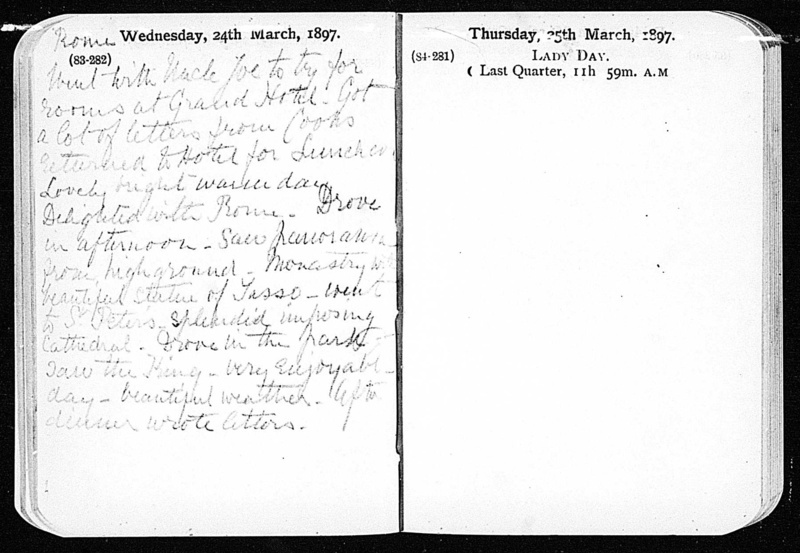 Rome
Wednesday, 24th March, 1897.
(83-282)
Went with Uncle Joe to try for
rooms at Grand Hotel. Got
a lot of letters from Cooks
returned to Hotel for Luncheon.
Lovely bright warm day
Delighted with Rome. Drove
in afternoon - Saw panorama
from high ground - Monastery with
beautiful statue of Tasso - went
to St Peter's. Splendid imposing
Cathedral. Drove in the park -
Saw the King - very enjoyable
day - beautiful weather. After
dinner wrote letters.
Thursday, 25th March, 1897.
(84-281)
LADY DAY.
( Last Quarter, 11h 59m. A.M